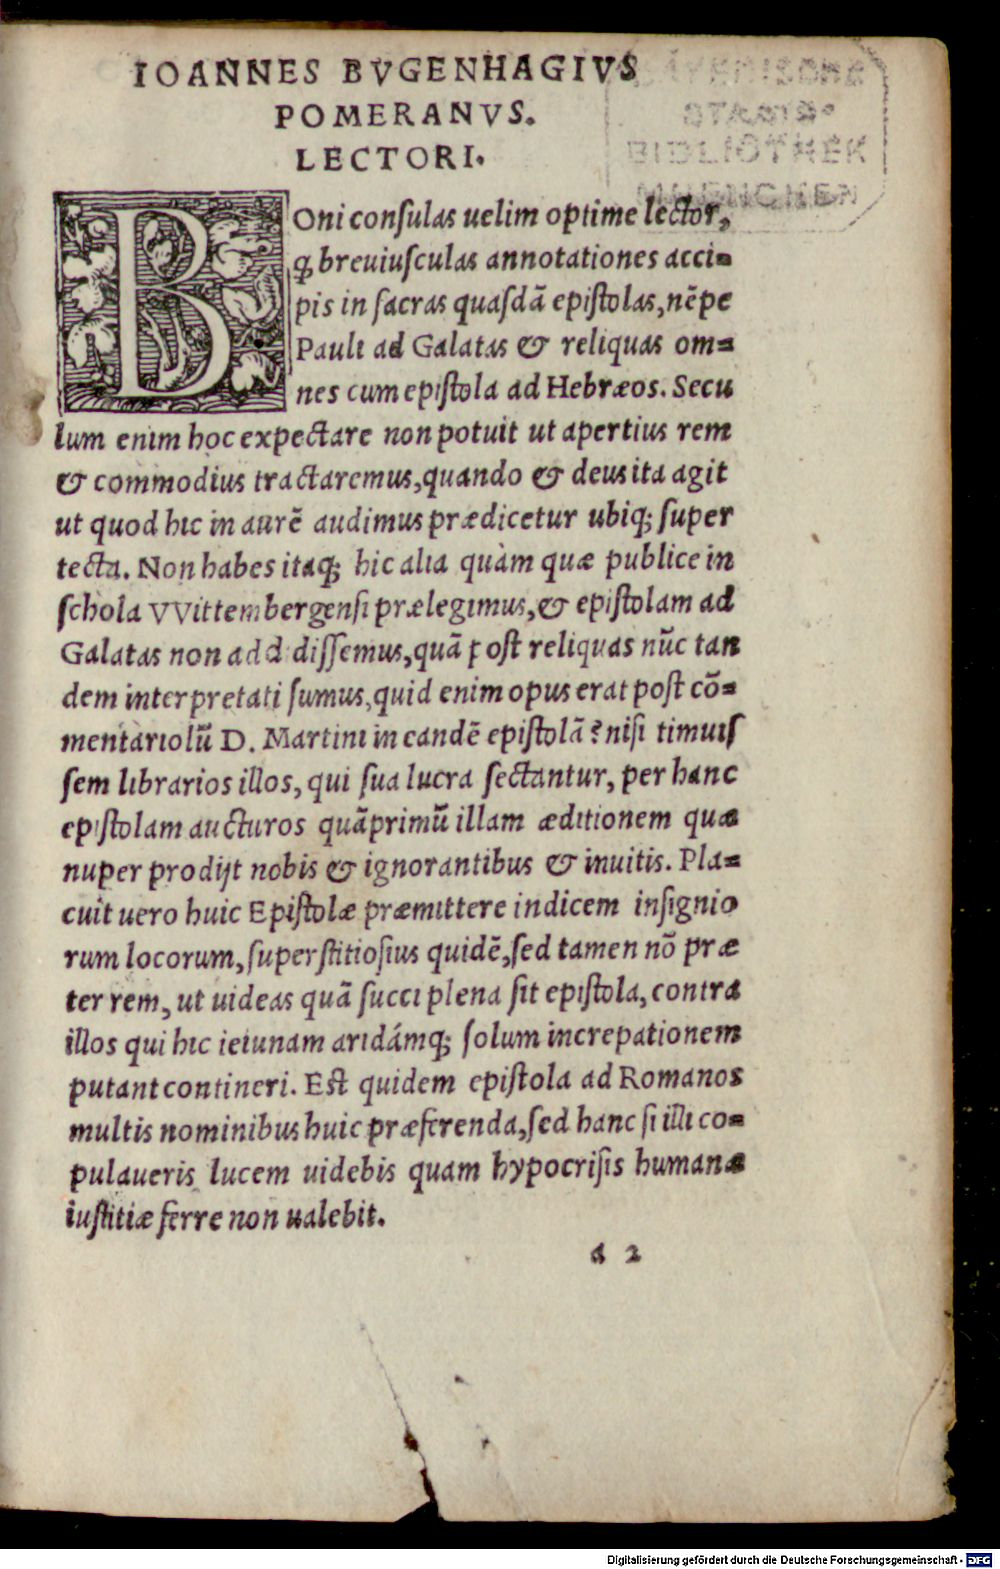 IOANNES BVGENHAGIVS
POMERANVS.
LECTORI.
BAYERISCHE
STAATS-
BIBLIOTHEK
MUENCHEN
BOni conſulas uelim optime lector,
ꝙ breuiuſculas annotationes acci=
pis in ſacras quaſdā epiſtolas, nēpe
Pauli ad Galatas & reliquas om=
nes cum epiſtola ad Hebræos. Secu
lum enim hoc expectare non potuit ut apertius rem
& commodius tractaremus, quando & deus ita agit
ut quod hic in aurē audimus prædicetur ubiq; ſuper
tecta. Non habes itaq; hic alia quàm quæ publice in
ſchola VVittembergenſi prælegimus, & epiſtolam ad
Galatas non addidiſſemus, quā poſt reliquas nūc tan
dem interpretati ſumus, quid enim opus erat poſt cō=
mentariolū D. Martini in eandē epiſtolā? niſi timuiſ
ſem librarios illos, qui ſua lucra ſectantur, per hanc
epiſtolam aucturos quāprimū illam æditionem quæ
nuper prodijt nobis & ignorantibus & inuitis. Pla=
cuit uero huic Epiſtolæ præmittere indicem inſignio
rum locorum, ſuperſtitioſius quidē, ſed tamen nō præ
ter rem, ut uideas quā ſucci plena ſit epiſtola, contra
illos qui hic ieiunam aridámq; ſolum increpationem
putant contineri. Eſt quidem epiſtola ad Romanos
multis nominibus huic præferenda, ſed hanc ſi illi co=
pulaueris lucem uidebis quam hypocriſis humanæ
iuſtitiæ ferre non ualebit.
a 2
Digitalisierung gefördert durch die Deutsche Forschungsgemeinschaft - DFG